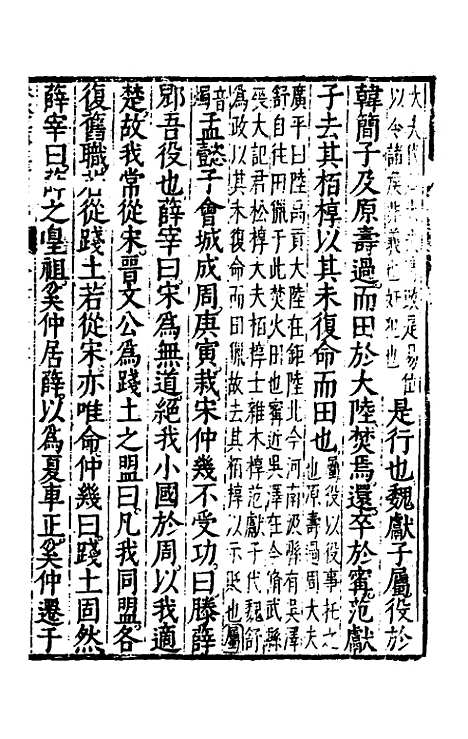 大夫代政是易位
以令諸侯非義也奸犯也
是行也魏獻子屬役於
韓簡子及原壽過而田於大陸焚焉還卒於甯范獻
子去其栢椁以其未復命而田也
屬役以役事托之
也原壽過周大夫
廣平曰陸禹貢大陸在鉅陸北今河南汲縣有吳澤
舒自往田獵于此焚火田也甯近吳澤在今脩武縣
喪大記君松椁大夫柏椁士雜木椁范獻子代魏舒
為政以其未復命而田獵故去其栢椁以示貶也屬
音燭
孟懿子會城成周庚寅栽宋仲幾不受功曰滕薛
郳吾役也薛宰曰宋爲無道絕我小國於周以我適
楚故我常從宋晉文公爲踐土之盟曰凡我同盟各
復舊職若從踐土若從宋亦唯命仲幾曰踐土固然
薛宰曰薛之皇祖奚仲居薛以爲夏車正奚仲遷于